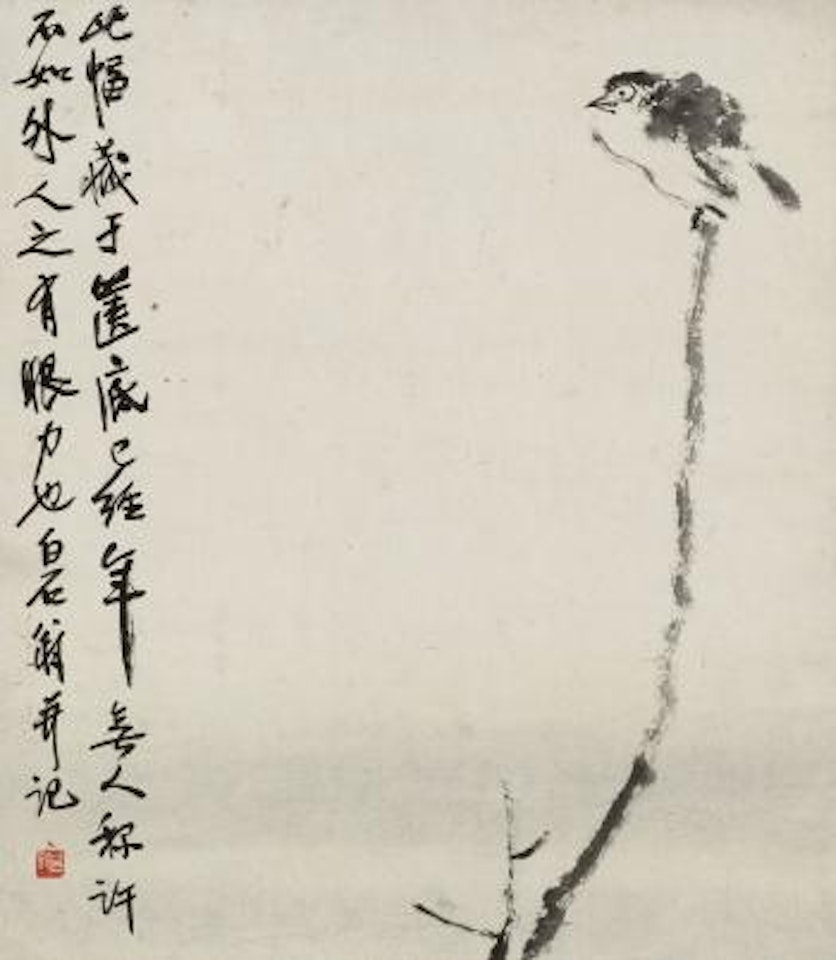 此幅藏于篋底已經年無人称許
不如外人之有眼力也白石翁并記